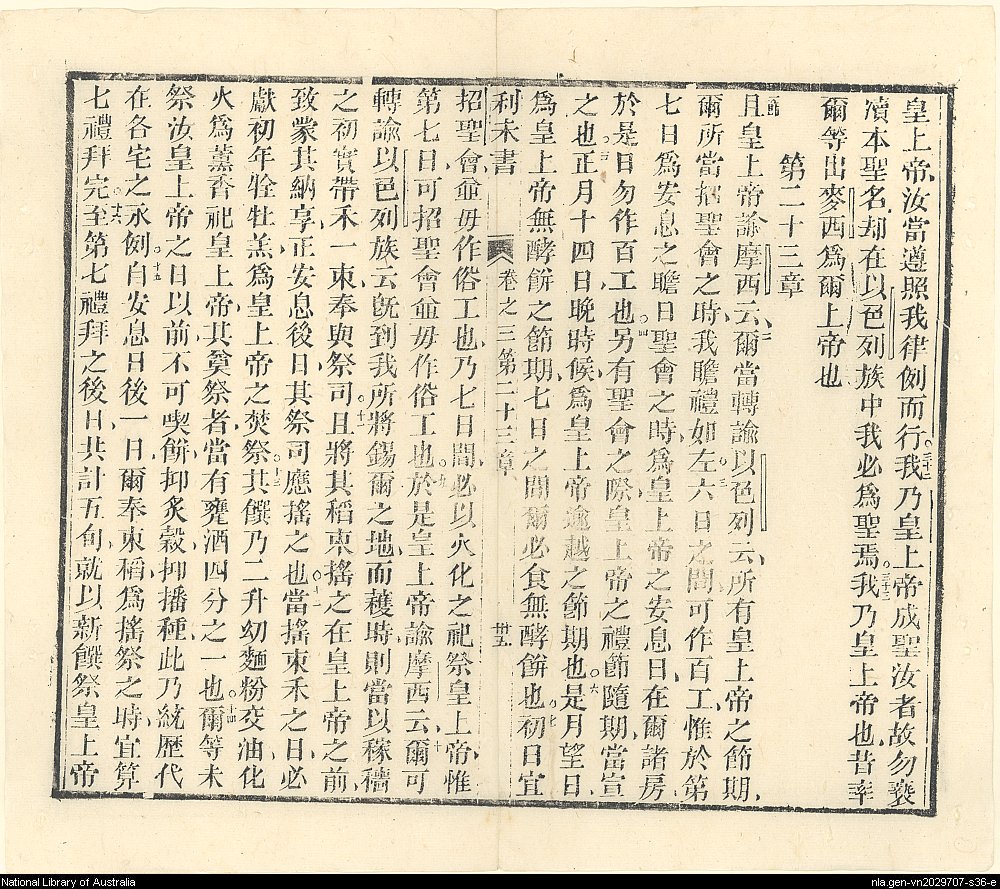 皇上帝、汝當遵照我律例而行。三十二我乃皇上帝成聖汝者故勿褻
瀆本聖名、却在以色列族中我必爲聖焉。三十三我乃皇上帝也、昔率
爾等出麥西爲爾上帝也
第二十三章
一節且皇上帝諭摩西云、二爾當轉諭以色列云、所有皇上帝之節期、
爾所當招聖會之時、我瞻禮如左。三六日之間可作百工、惟於第
七日爲安息之瞻日聖會之時、爲皇上帝之安息日、在爾諸房、
於是日勿作百工也。四另有聖會之際、皇上帝之禮節隨期、當宣
之也。五正月十四日晚時候、爲皇上帝逾越之節期也。六是月望日、
爲皇上帝無酵餅之節期、七日之間爾必食無酵餅也。七初日宜
利未書 卷之三第二十三章 卅五
招聖會、並毋作俗工也。八乃七日間、必以火化之祀祭皇上帝、惟
第七日、可招聖會並毋作俗工也。九於是皇上帝諭摩西云、十爾可
轉諭以色列族云、旣到我所將錫爾之地、而穫時、則當以稼穡
之初實帶禾一束、奉與祭司。十一且將其稻束搖之在皇上帝之前、
致蒙其納享、正安息後日、其祭司應搖之也。十二當搖束禾之日、必
獻初年牷牡羔、爲皇上帝之焚祭。十三其饌乃二升幼麵粉交油、化
火爲薰香祀皇上帝、其奠祭者、當有甕酒四分之一也。十四爾等未
祭汝皇上帝之日以前、不可喫餅、抑炙穀、抑播種、此乃統歷代
在各宅之永例。十五自安息日後一日、爾奉束稻爲搖祭之時、宜算
七禮拜完。十六至第七禮拜之後日、共計五旬、就以新饌祭皇上帝
National Library of Australia
nla.gen-vn2029707-s36-e